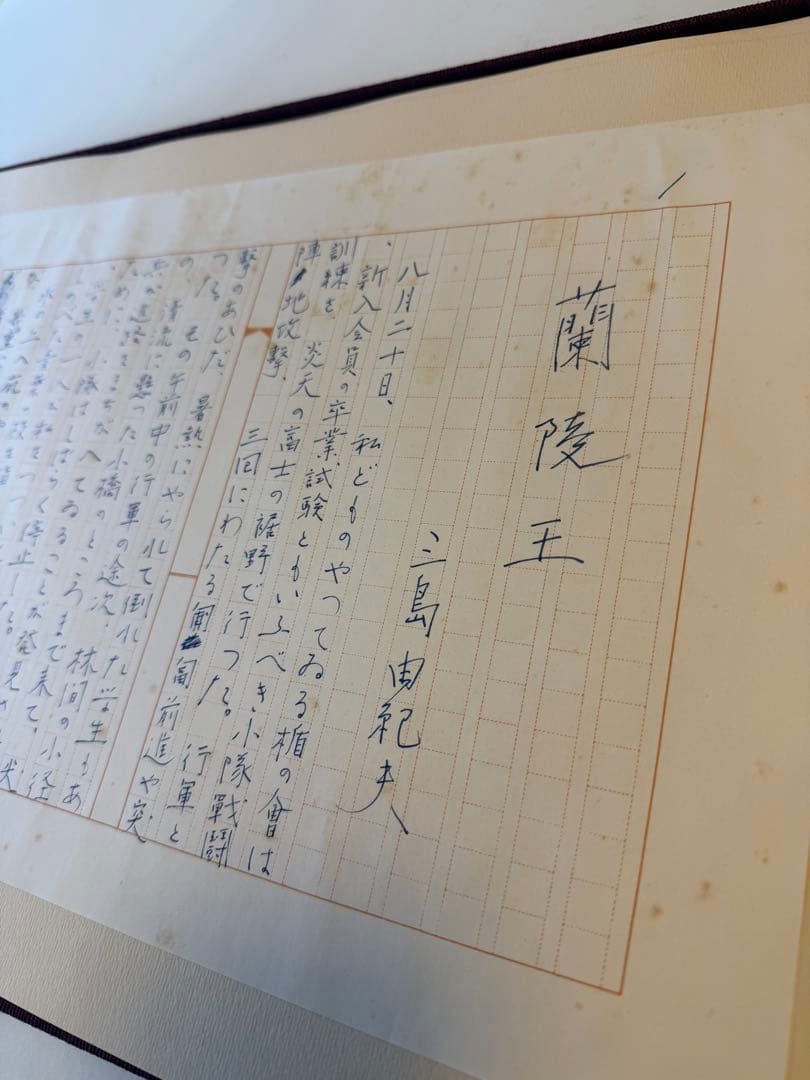 ／
蘭陵王
三島由紀夫
八月二十日、私どものやつてゐる楯の會は
、新入会員の卒業試験ともいふべき小隊戰闘
訓練を、炎天の富士の裾野で行つた。行軍と
陣地攻撃、三回にわたる匍匐前進や突
撃のあひだ、暑熱にやられて倒れた学生もあ
つた。その午前中の行軍の途次、林間の小径
の、清流に懸つた小橋のところまで来て、
道路をまちがへてゐることが発見
ために、小隊はしばらく停止した。